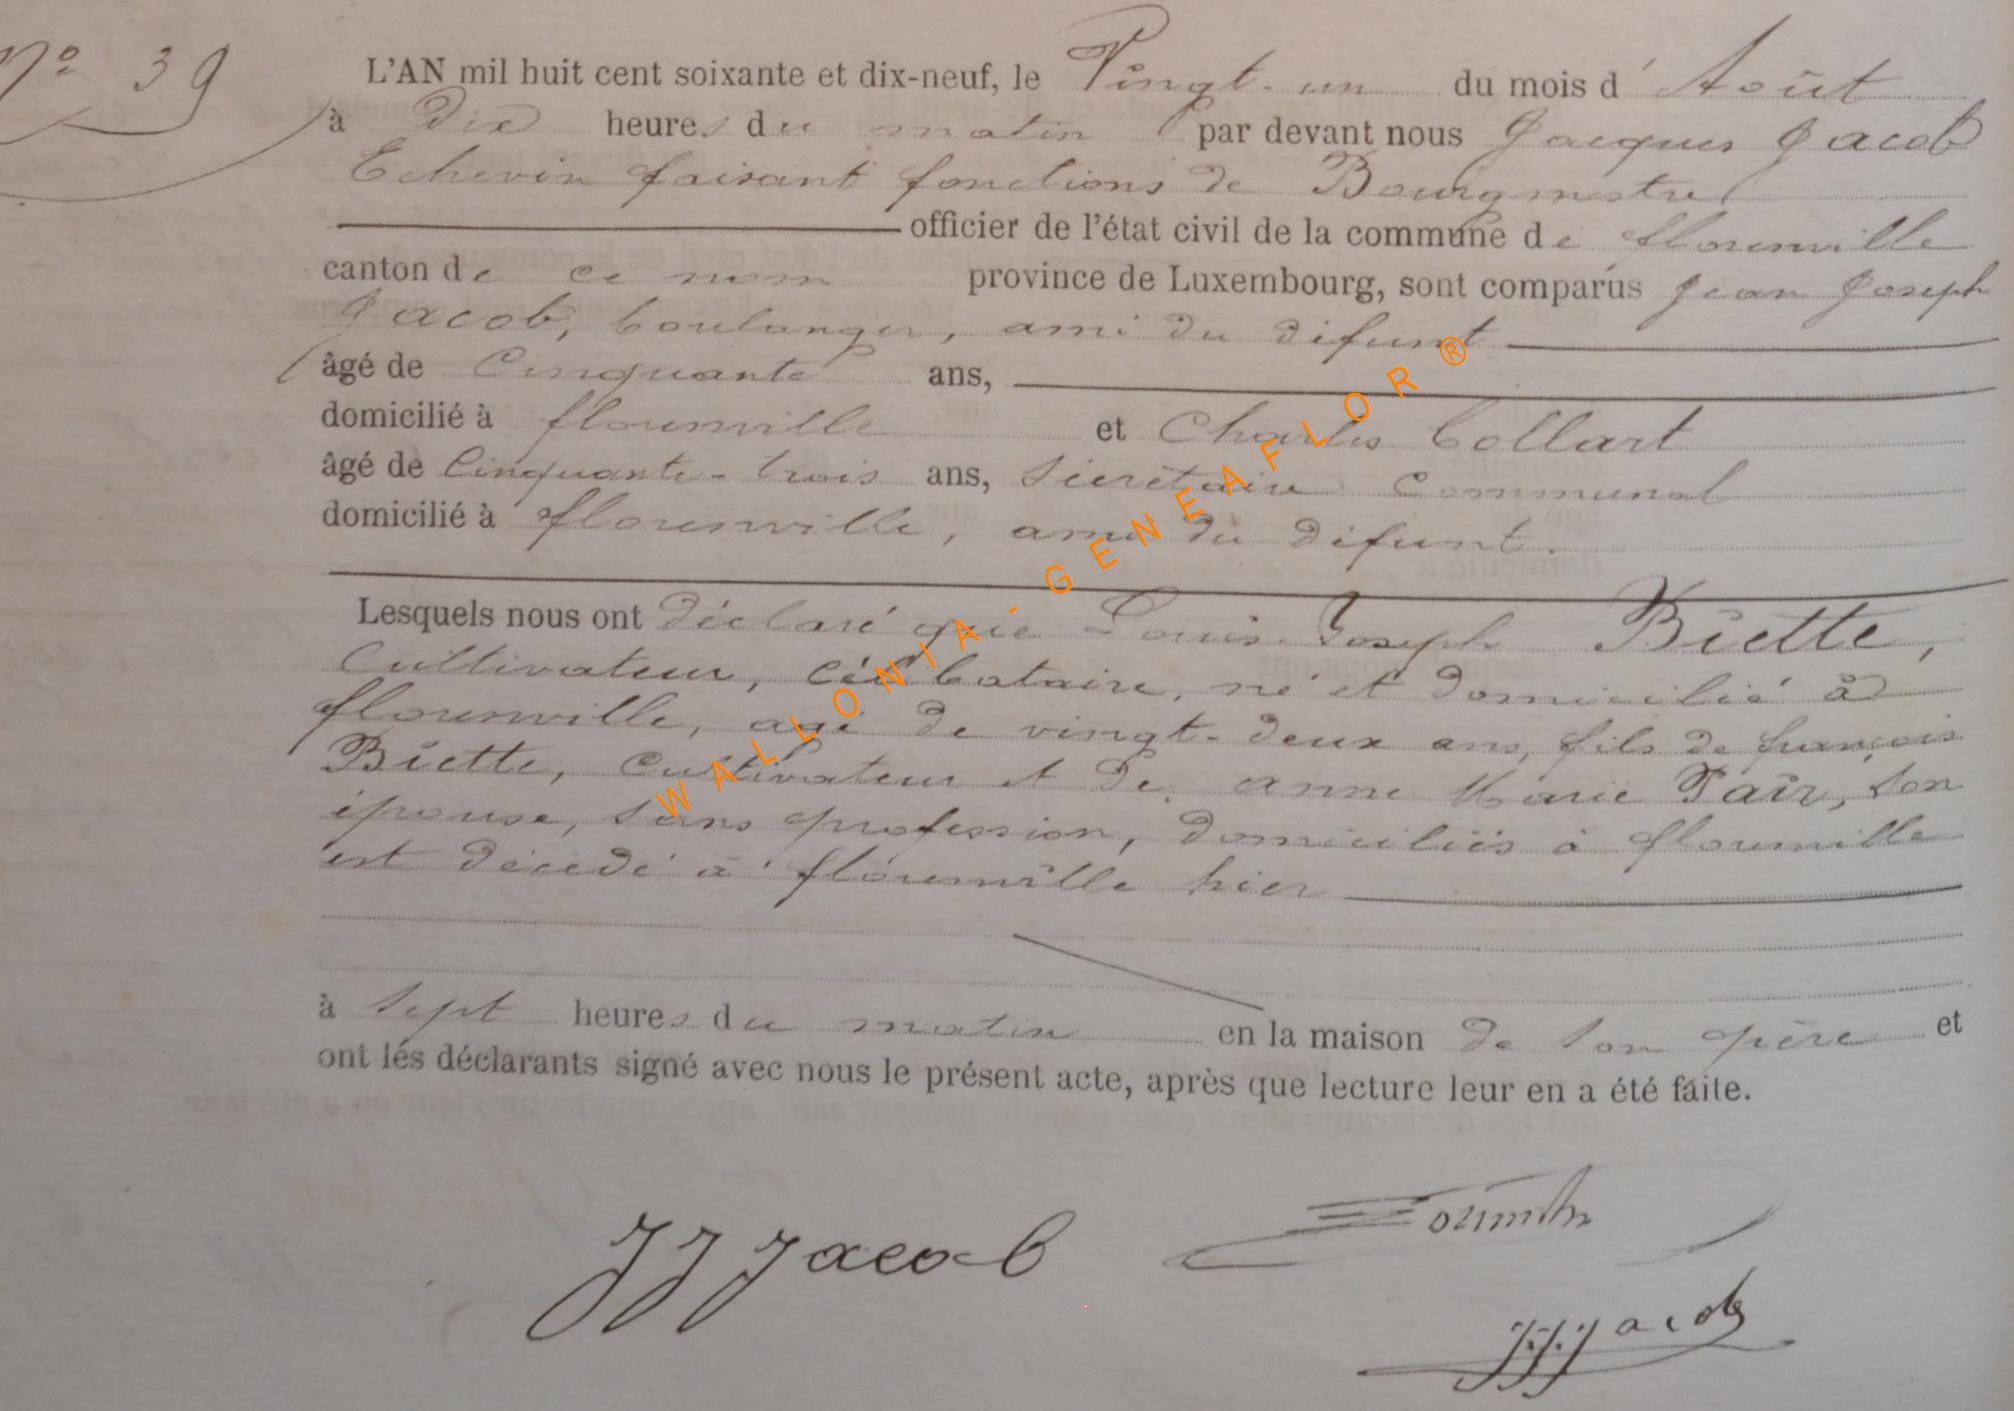 N° 39
L'AN mil huit cent soixante et dix-neuf, le Vingt-un du mois d'Août
à dix heures du matin par devant nous Jacques Jacob
Echevin faisant fonctions de Bourgmestre
officier de l'état civil de la commune de florenville
canton de ce nom province de Luxembourg, sont comparus Jean Joseph
Jacob, boulanger, ami du défunt
âgé de Cinquante ans,
domicilié à florenville et Charles Collart
âgé de Cinquante-trois ans, Sécrétaire Communal
domicilié à florenville, ami du défunt.
Lesquels nous ont déclaré que Louis-Joseph Biette,
Cultivateur, Célibataire, né et domicilié à
florenville, agé de vingt-deux ans, fils de françois
Biette, Cultivateur et de anne Marie Pair, son
épouse, sans profession, domiciliés à florenville
est décédé à florenville hier
à sept heures du matin en la maison de son père et
ont les déclarants signé avec nous le présent acte, après que lecture leur en a été faite.
JJJacob
JJJacob
WALLONIA - GENEAFLOR®